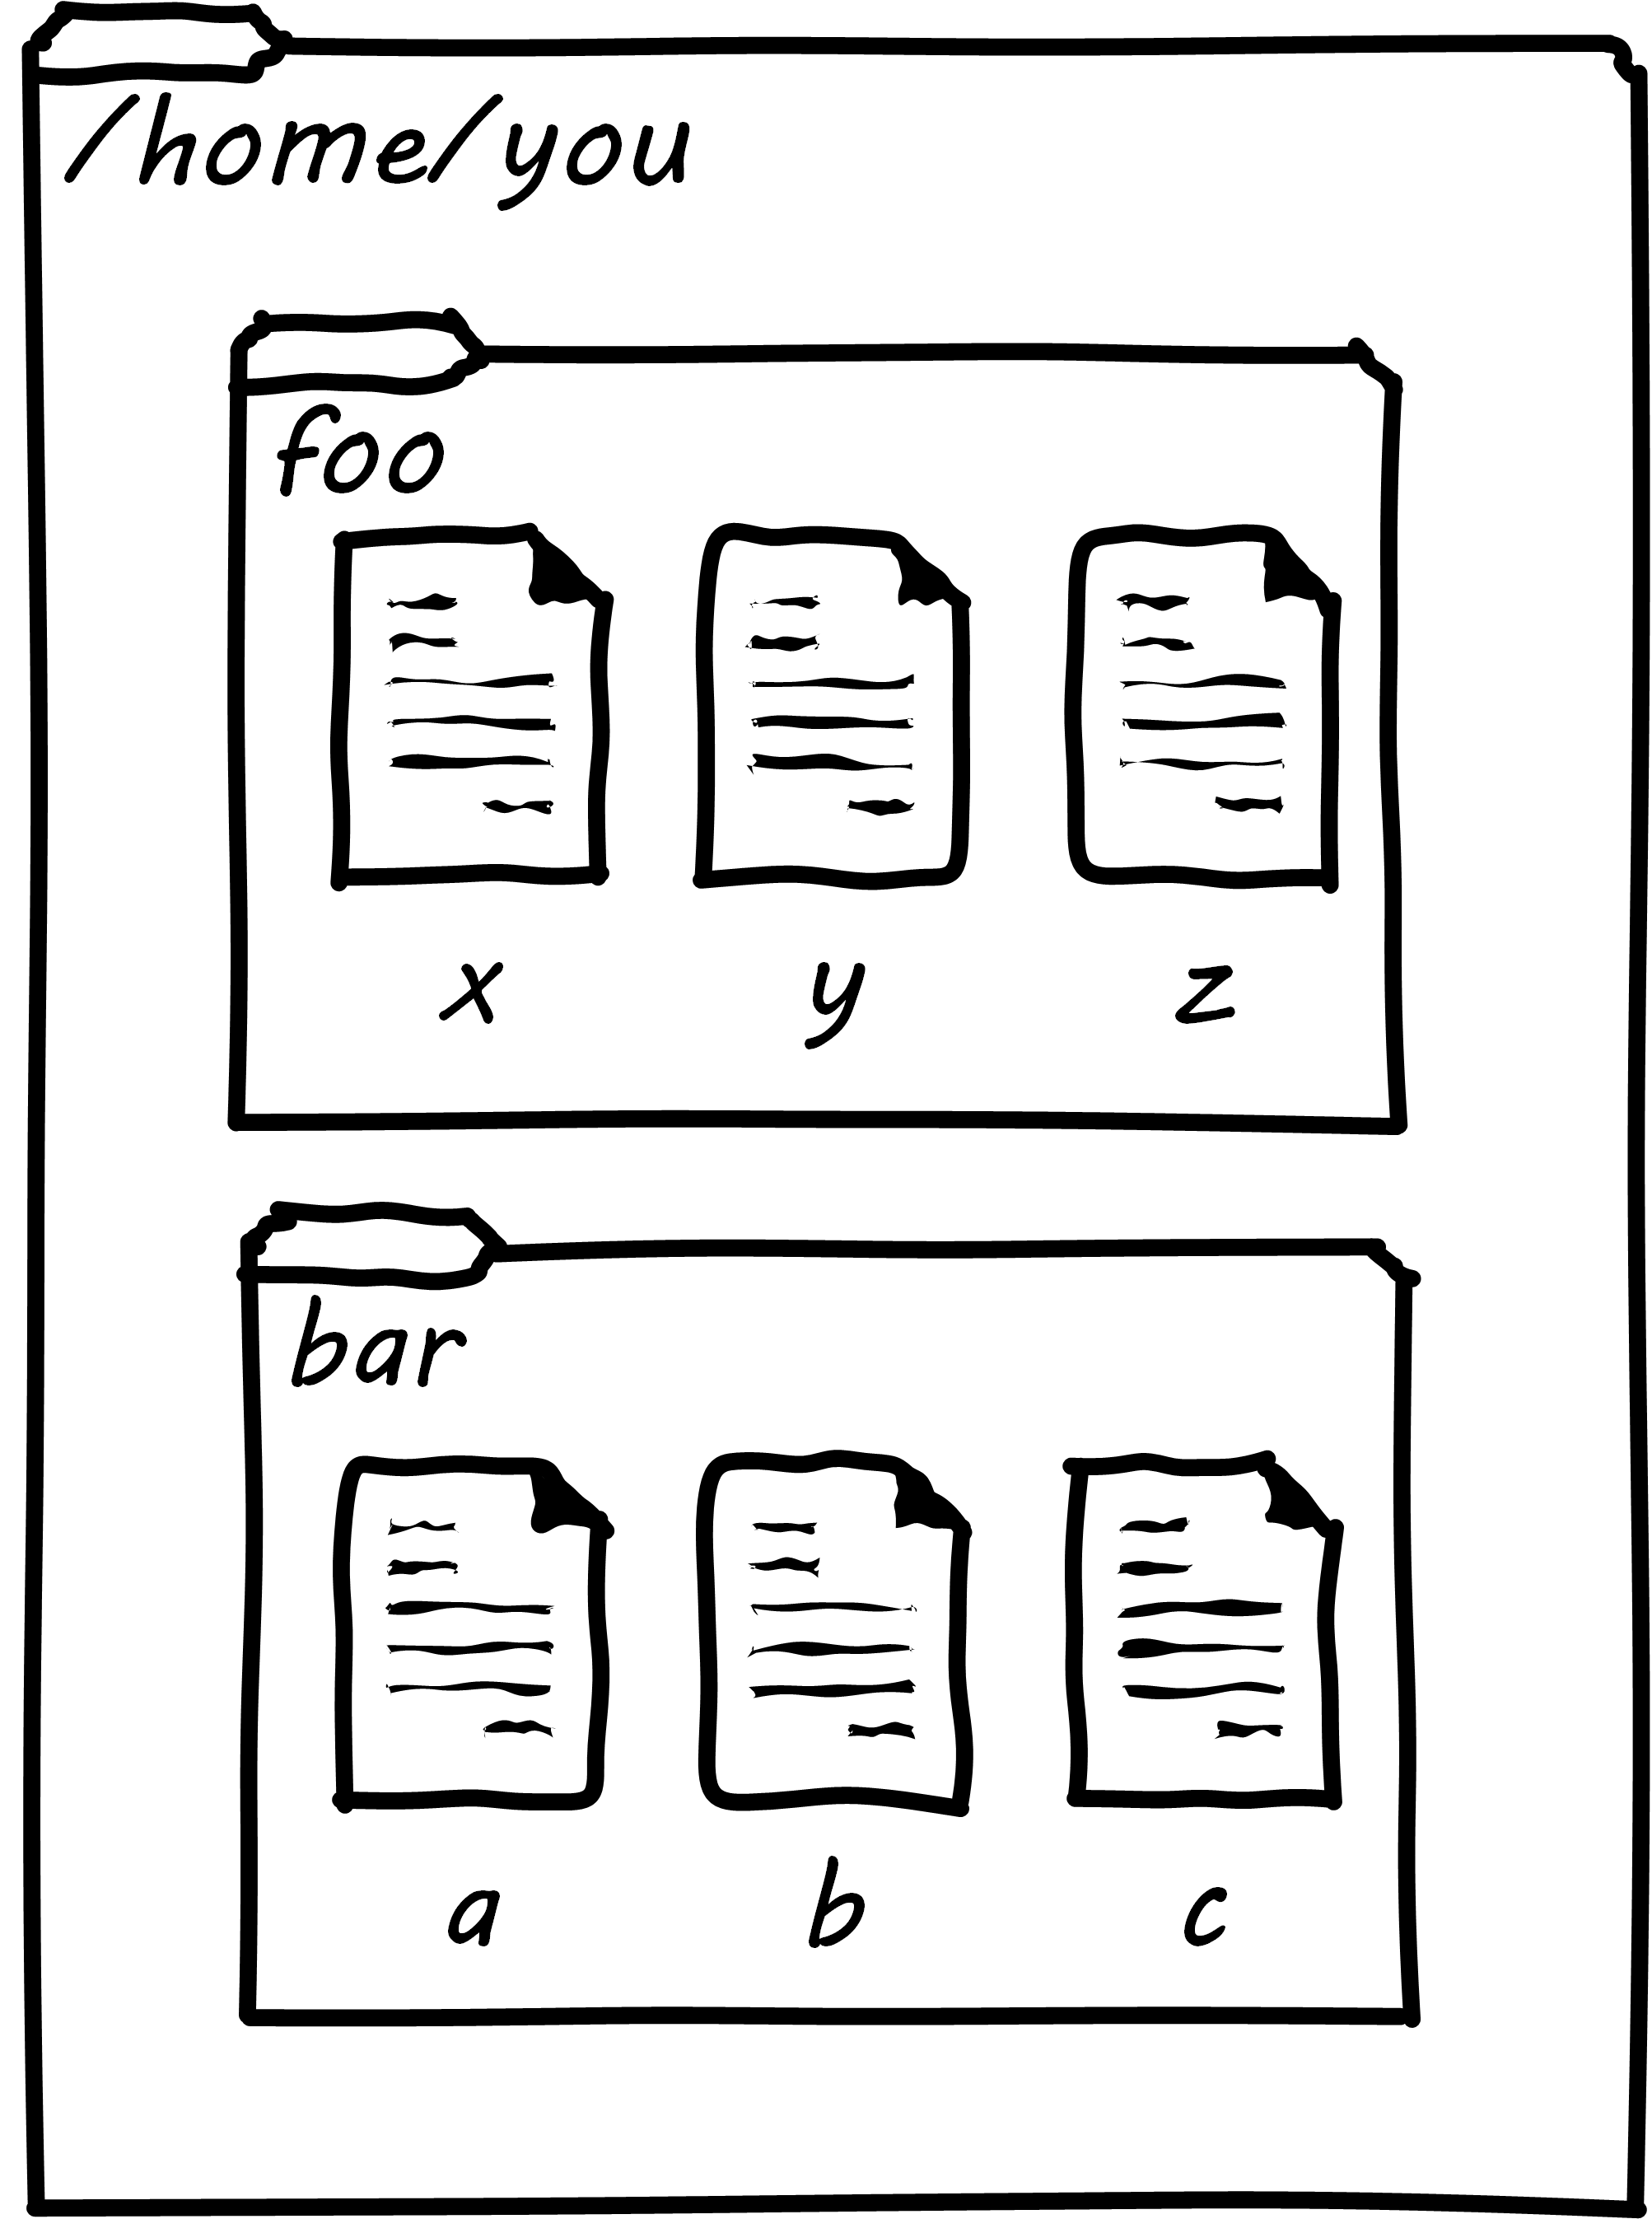 /home/you
foo
x y z
bar
a b c